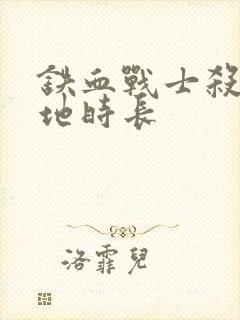 鉄血戰士殺
地時長
洛霏兒